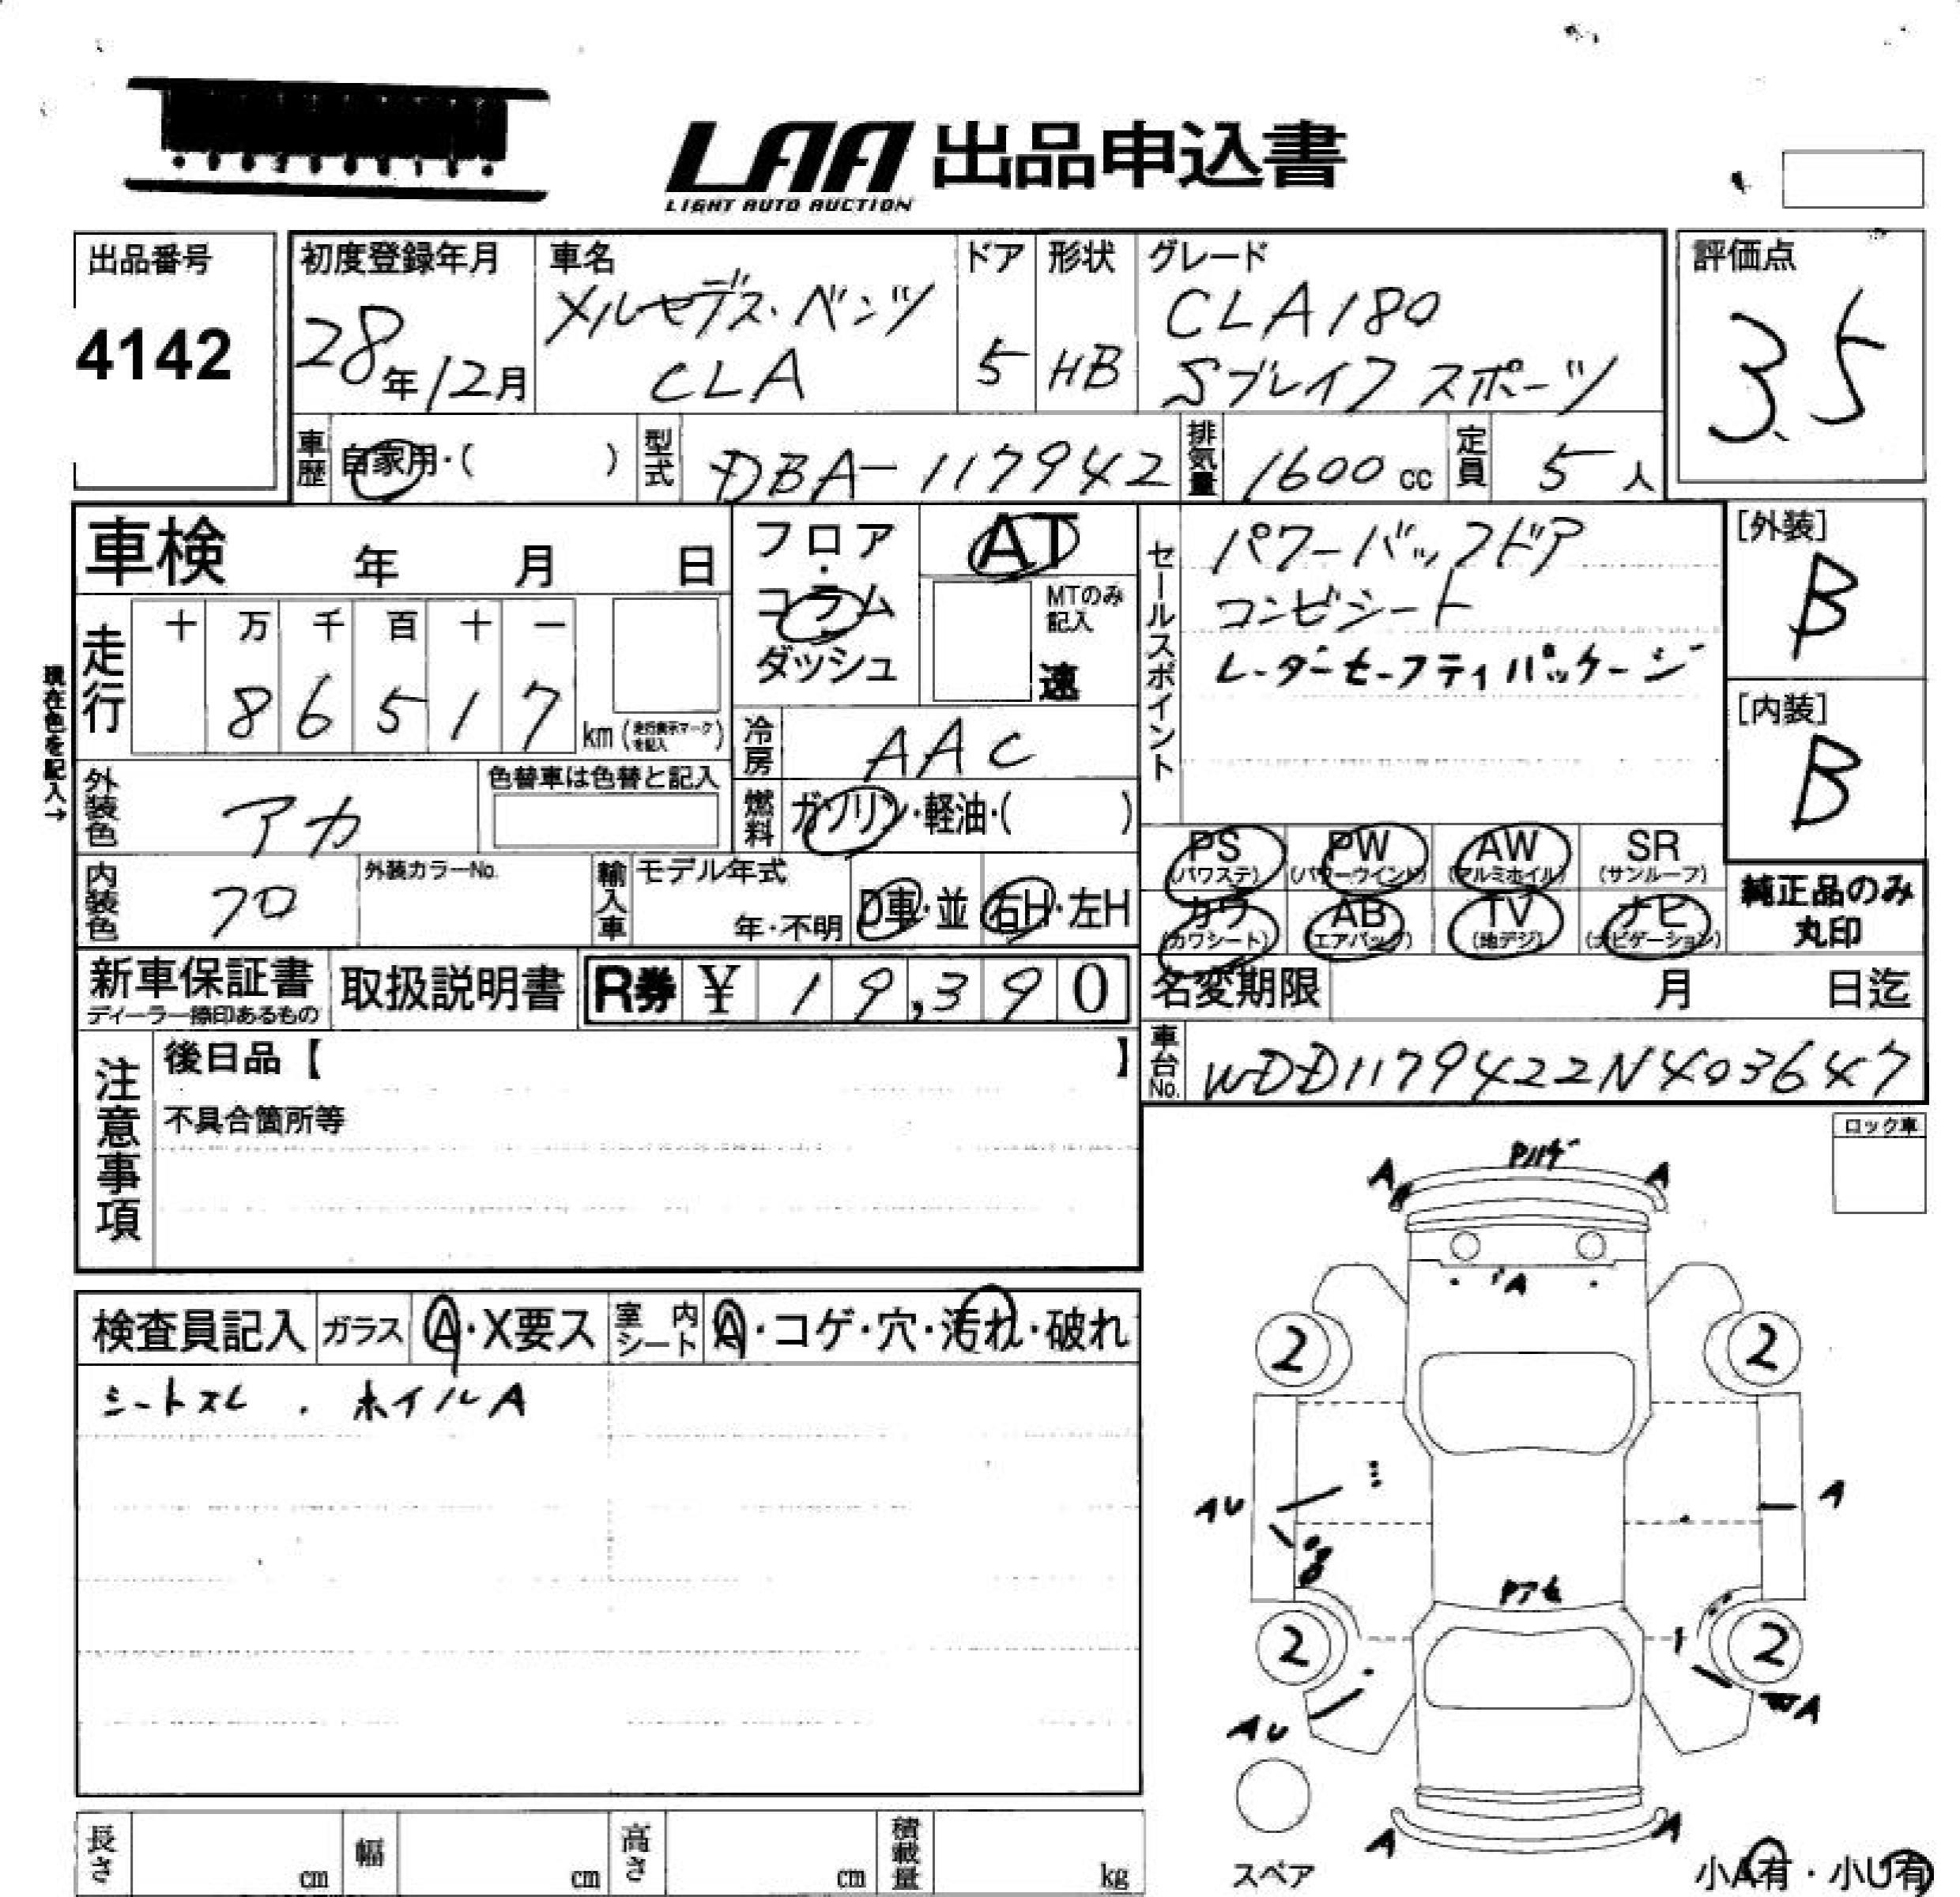 LAA 出品申込書
LIGHT AUTO AUCTION
出品番号
4142
初度登録年月
28年12月
車名
メルセデス・ベンツ
CLA
ドア
5
形状
HB
グレード
CLA180
Sブレイク スポーツ
評価点
3.5
車歴
自家用・( )
型式
DBA-117942
排気量
1600 cc
定員
5 人
車検 年 月 日
走行
十 万 千 百 十 一
8 6 5 1 7
km (走行表示マークを記入)
現在色を記入→
外装色
アカ
色替車は色替と記入
内装色
クロ
外装カラーNo.
輸入車
モデル年式
年・不明
D車・並
右H・左H
フロア
・
コラム
・
ダッシュ
AT
MTのみ
記入
速
冷房
AAC
燃料
ガソリン・軽油・( )
セールスポイント
パワーバックドア
コンビシート
レーダーセーフティパッケージ
[外装]
B
[内装]
B
PS
(パワステ)
PW
(パワーウインド)
AW
(アルミホイル)
SR
(サンルーフ)
カワ
(カワシート)
AB
(エアバッグ)
TV
(地デジ)
ナビ
(ナビゲーション)
純正品のみ
丸印
新車保証書
ディーラー捺印あるもの
取扱説明書
R券 ¥ 19,390
名変期限 月 日迄
車台No.
WDD1179422N403647
注意事項
後日品【 】
不具合箇所等
ロック車
検査員記入
ガラス
A・X要ス
室内シート
A・コゲ・穴・汚れ・破れ
シートスレ . ホイルA
A A
A
2 2
AU A
2 2
AU WA
A A
スペア
小A有・小U有
長さ cm
幅 cm
高さ cm
積載量 kg